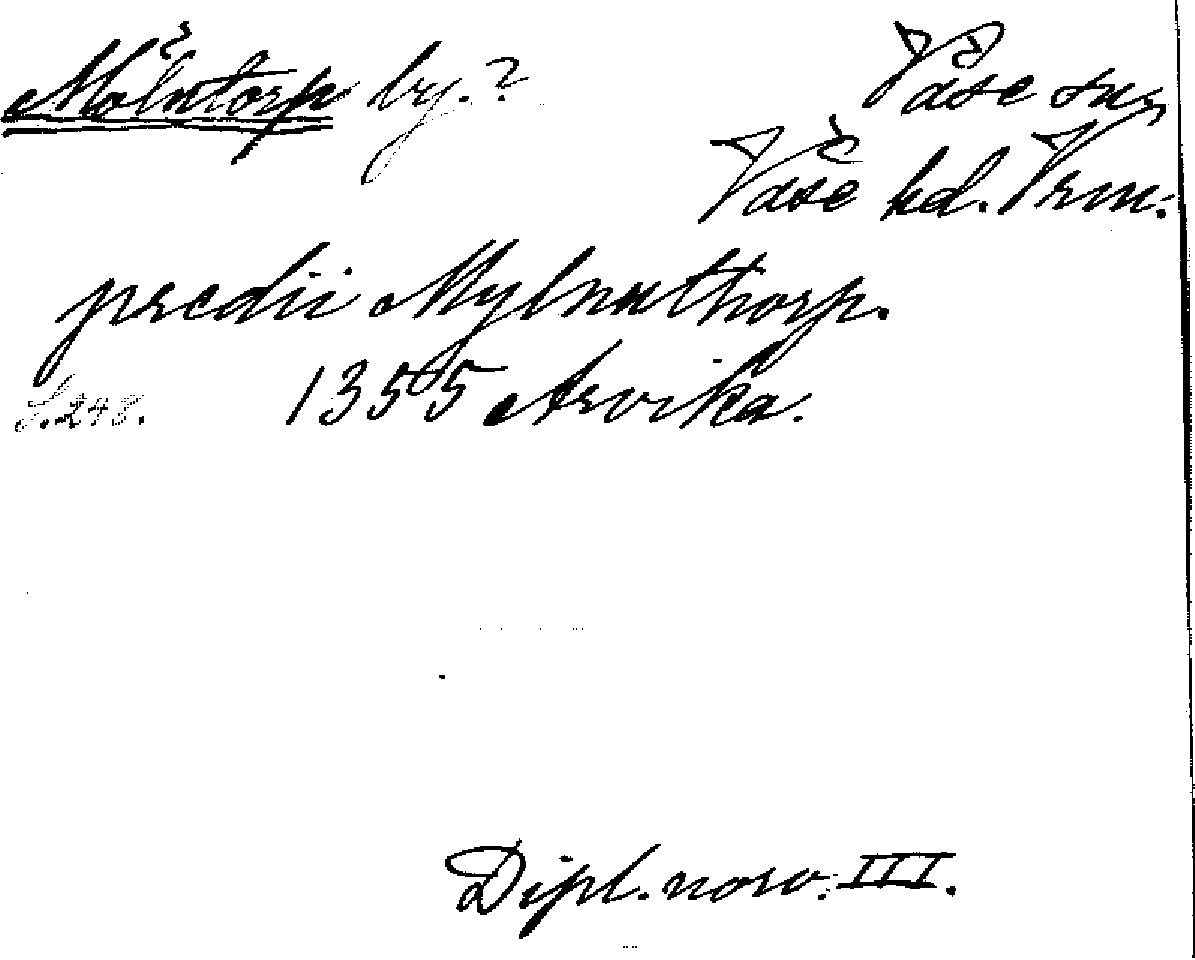 Mölntorp by.?
Väse sn,
Väse hd. Vrm.
predii Mylnuthorp.
S. 248. 1355 Arvika.
Dipl. norv. III.